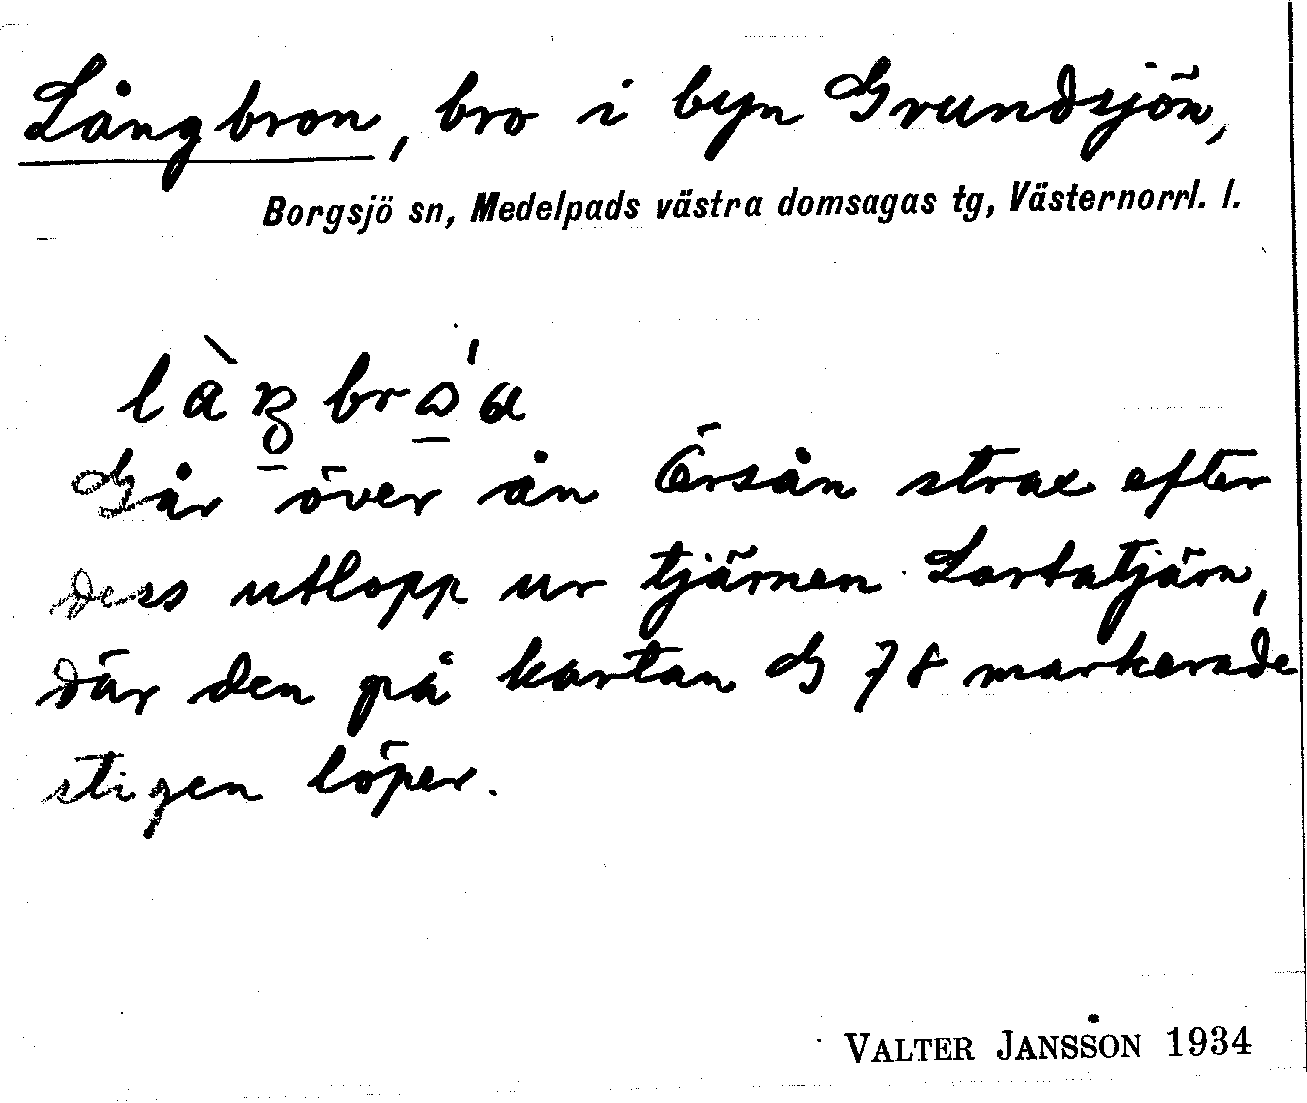 Långbron, bro i byn Grundsjön,
Borgsjö sn, Medelpads västra domsagas tg, Västernorrl. l.
Går över ån Örsån strax efter
dess utlopp ur tjärnen Lortatjärn,
där den på kartan G 78 markerade
stigen löper.
VALTER JANSSON 1934